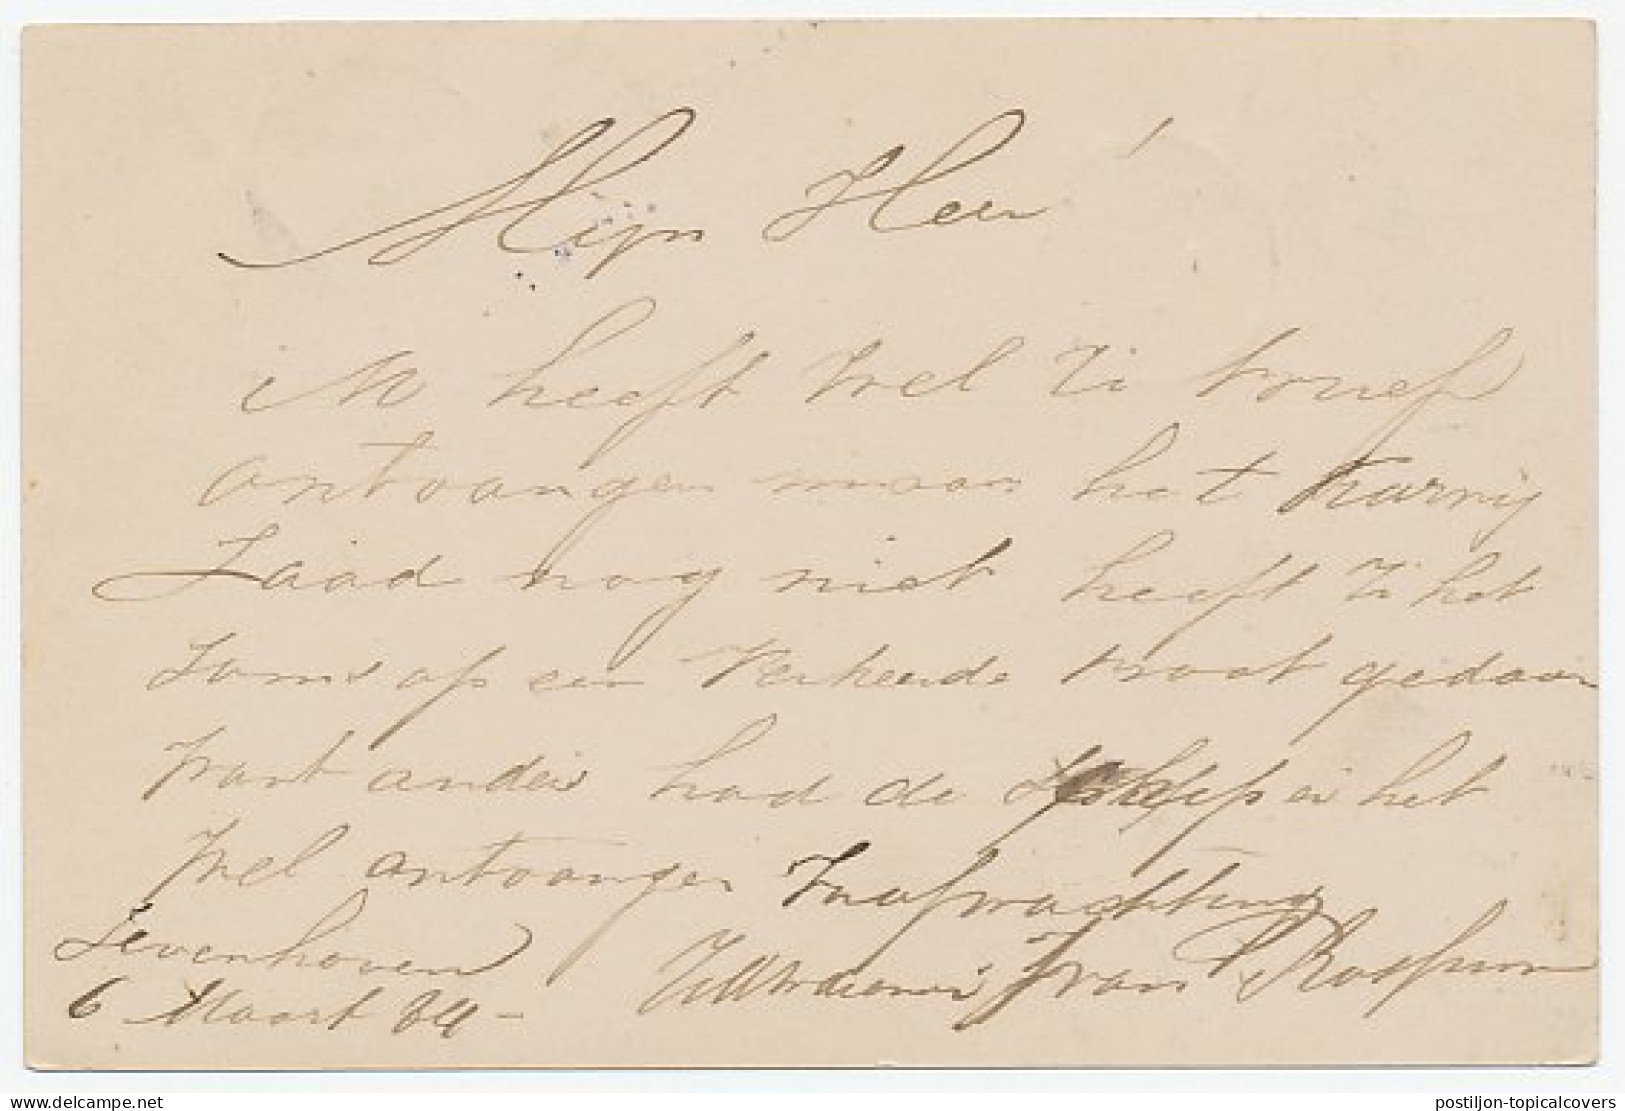 Mijn Heer
heeft Wel Zi
ontvangen maar het Karwij
Zaad nog niet heeft Zi het
Soms op een Verkeerde gedaan
want anders had de Schipper het
Wel ontvangen Inafwachting
Zevenhoven
6 Maart 84 - van
delcampe.net
postiljon-topicalcovers